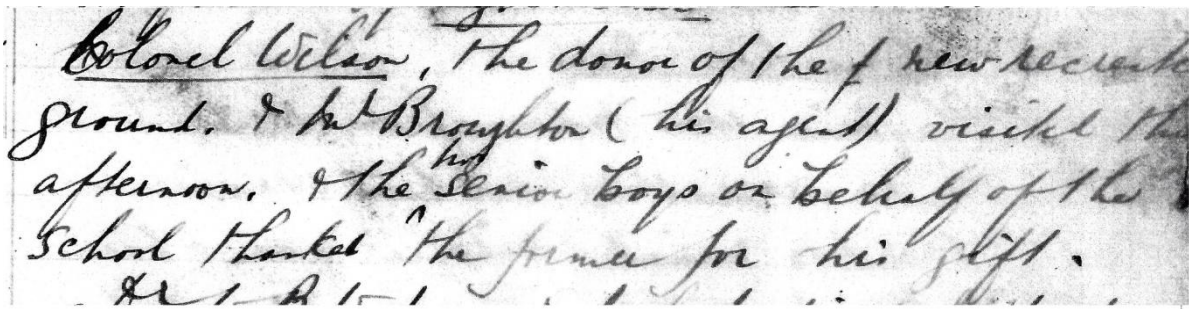 Colonel Wilson, the donor of the f new recreatio
ground. & Mr Broughton (his agent) visited the
afternoon. & the two senior boys on behalf of the
school thanked the former for his gift.